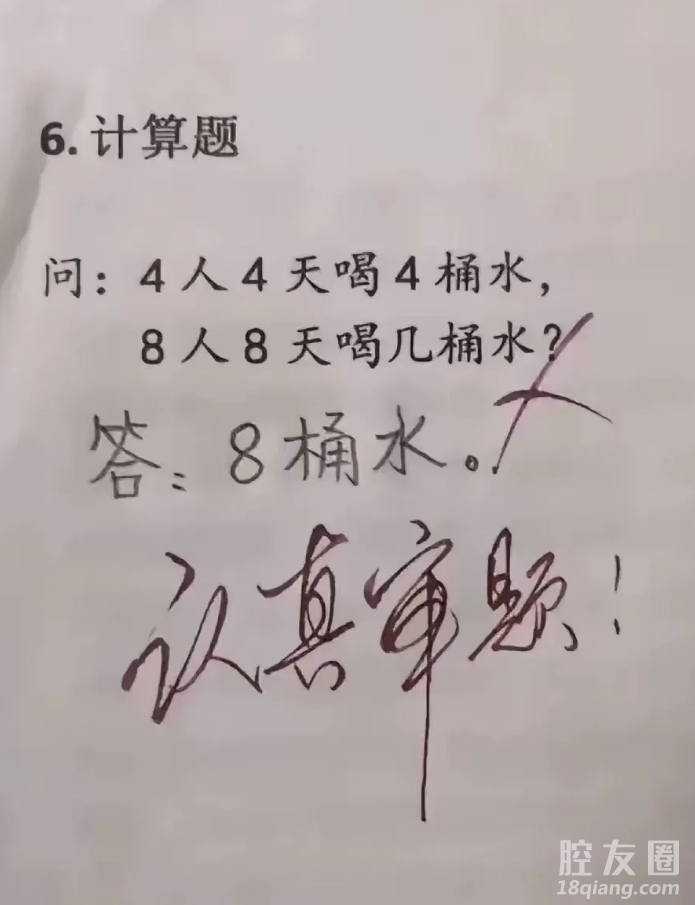 6. 计算题
问：4人4天喝4桶水，
8人8天喝几桶水？
答：8桶水。
认真审题！
腔友圈
18qiang.com